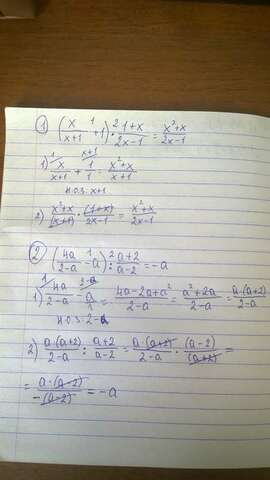 ① (x/(x+1) ¹ + 1) ² · (1+x)/(2x-1) = (x²+x)/(2x-1)
1) x/(x+1) + 1/1 = (x²+x)/(x+1)
н.о.з: x+1
2) (x²+x)/(x+1) · (1+x)/(2x-1) = (x²+x)/(2x-1)
② (4a/(2-a) ¹ - a) ² : (a+2)/(a-2) = -a
1) 4a/(2-a) - a/1 = (4a-2a+a²)/(2-a) = (a²+2a)/(2-a) = (a·(a+2))/(2-a)
н.о.з: 2-a
2) (a·(a+2))/(2-a) : (a+2)/(a-2) = (a·(a+2))/(2-a) · (a-2)/(a+2) =
= (a·(a-2))/(-(a-2)) = -a